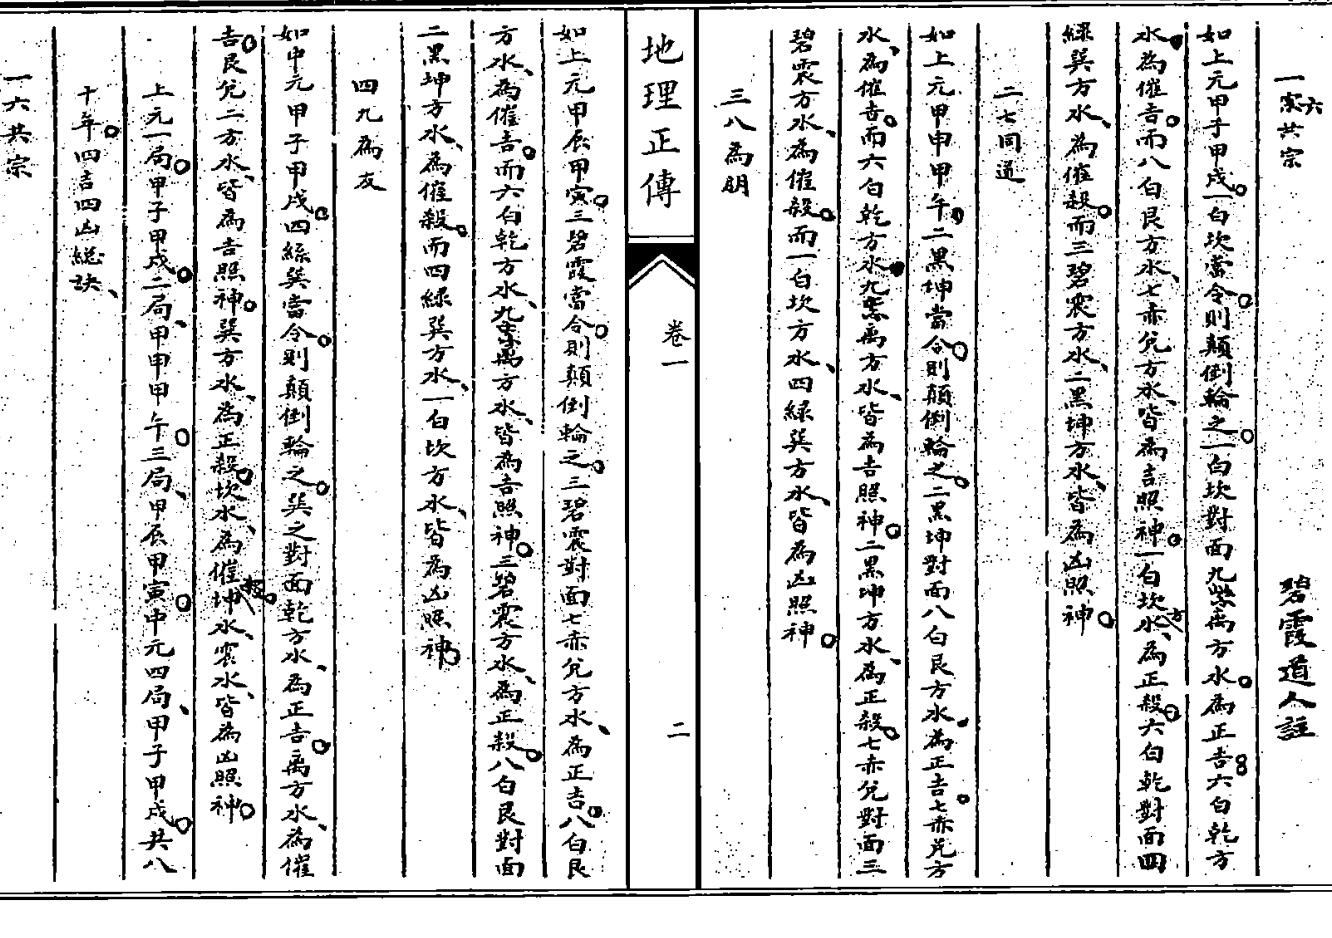 一六共宗
碧霞道人註
如上元甲子甲戌一白坎當令則顛倒輪之一白坎對面九紫离方水為正吉六白乾方
水為催吉而八白艮方水七赤兌方水皆為吉照神一白坎方水為正殺六白乾對面四
綠巽方水為催殺而三碧震方水二黑坤方水皆為凶照神
二七同道
如上元甲申甲午二黑坤當令則顛倒輪之二黑坤對面八白艮方水為正吉七赤兌方
水為催吉而六白乾方水九紫离方水皆為吉照神二黑坤方水為正殺七赤兌對面三
碧震方水為催殺而一白坎方水四綠巽方水皆為凶照神
三八為朋
地理正傳
卷一
二
如上元甲辰甲寅三碧霞當令則顛倒輪之三碧震對面七赤兌方水為正吉八白艮
方水為催吉而六白乾方水九紫离方水皆為吉照神三碧震方水為正殺八白艮對面
二黑坤方水為催殺而四綠巽方水一白坎方水皆為凶照神
四九為友
如中元甲子甲戌四綠巽當令則顛倒輪之巽之對面乾方水為正吉离方水為催
吉艮兌二方水皆為吉照神巽方水為正殺坎水為催殺坤水震水皆為凶照神
上元一局甲子甲戌二局甲申甲午三局甲辰甲寅中元四局甲子甲戌共八
十年四吉四凶總訣
一六共宗